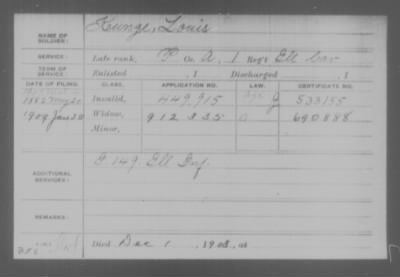 Kunge, Louis
NAME OF SOLDIER:
SERVICE: Late rank, P Co. A, 1 Reg't Ill Cav
TERM OF SERVICE: Enlisted , 1 Discharged , 1
DATE OF FILING. CLASS. APPLICATION NO. LAW. CERTIFICATE NO.
1882 May 20 Invalid, 449,915 533155
1909 Jan 28 Widow, 912 335 690888
Minor,
ADDITIONAL SERVICES: F 149 Ill Inf
REMARKS:
Died Dec 1 1908, at